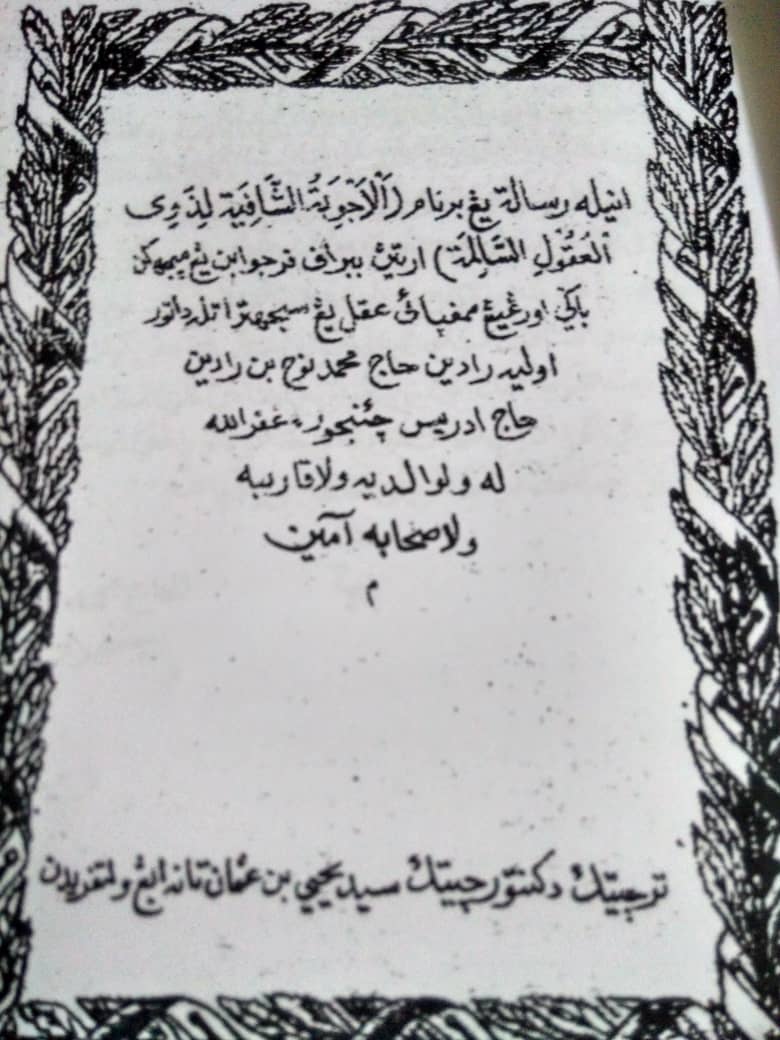 انيله رسالة يڠ برنام (اَلْاَجْوِبَةُ الشَّافِيَة لِذَوِى
الْعُقُوْلِ السَّالِمَة) ارتيڽ ببراڤ فرجوابن يڠ
باڬي اورڠيڠ ممڤياءي عقل يڠ سجهترا
اوليه رادين حاج محمد نوح بن رادين
حاج ادريس چنجور، غفر الله
له ولوالديه ولاقاربه
ولاصحابه آمين
م
ترچيتك دكنتور چيتك سيد يحيي بن عثمان تانه ابڠ